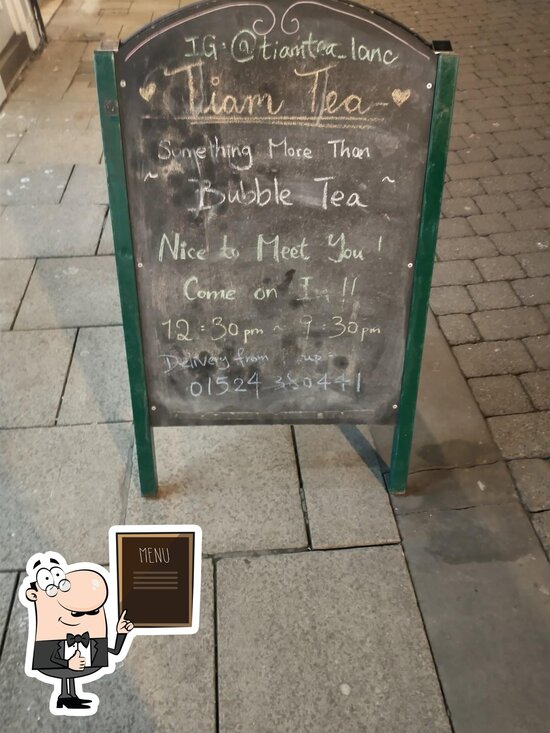 IG·@tiamtea_lanc
Tiam Tea
Something More Than
~ Bubble Tea ~
Nice to Meet You!
Come on In !!
12:30pm ~ 9:30pm
Delivery from
01524 380441
MENU